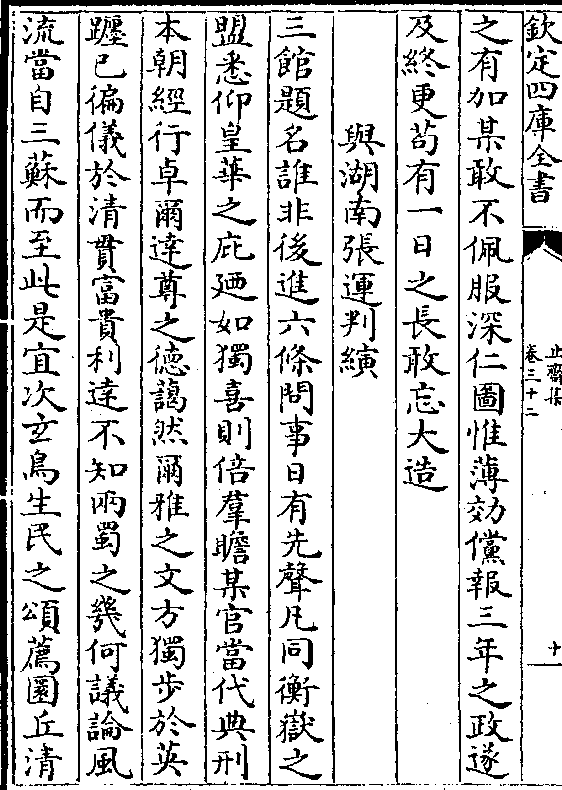 欽定四庫全書
止齋集
卷三十二
十
之有加某敢不佩服深仁圖惟薄効儻報三年之政遂
及終更苟有一日之長敢忘大造
與湖南張運判縯
三館題名誰非後進六條問事日有先聲凡同衡嶽之
盟悉仰皇華之庇廼如獨喜則倍羣瞻某官當代典刑
本朝經行卓爾達尊之德藹然爾雅之文方獨步於英
躔已徧儀於清貫富貴利達不知兩蜀之幾何議論風
流當自三蘇而至此是宜次玄鳥生民之頌薦圜丘清